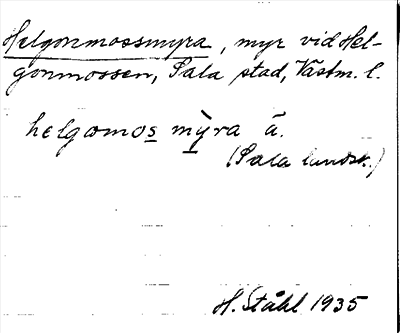 Helgonmossmyra, myr vid Hel-
gonmossen, Sala stad, Västm. l.
helgomos mỳra ä.
(Sala landsk.)
H. Ståhl 1935